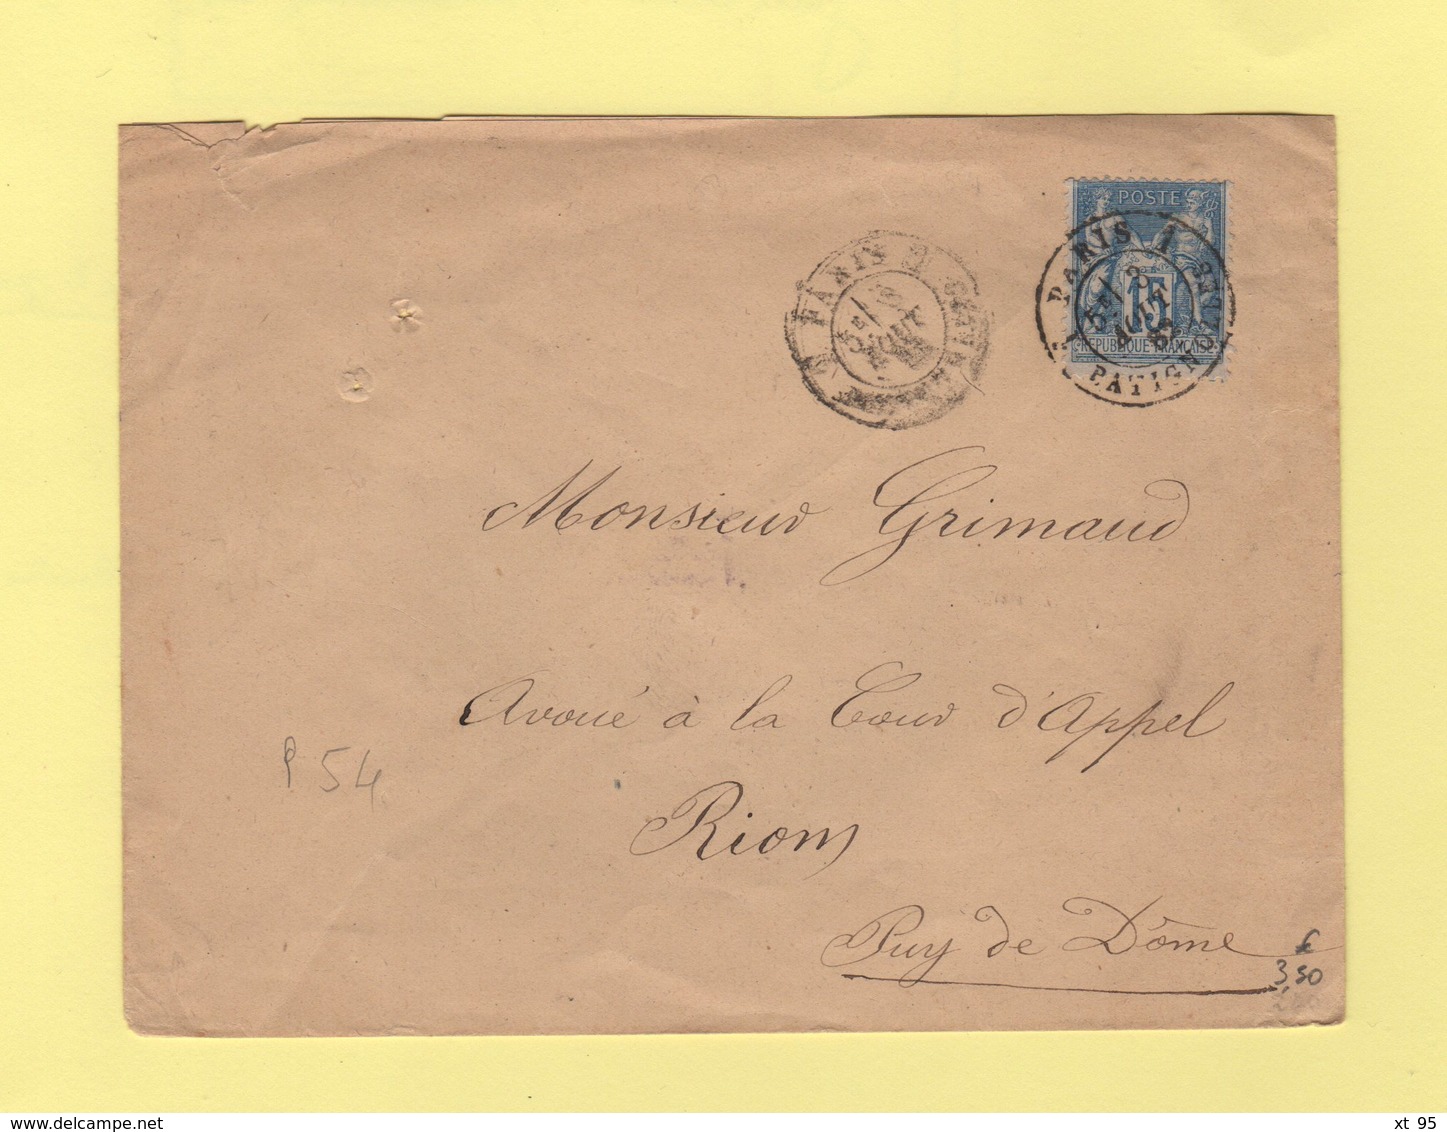 POSTE
15
REPUBLIQUE FRANÇAISE
PARIS 1
5E/ 8
AOUT
BATIGNOLLES
PARIS
5E/ 8
AOUT
Monsieur Grimaud
Avoué à la Cour d'Appel
Riom
Puy de Dôme
P 54
3,50
delcampe.net
xt 95